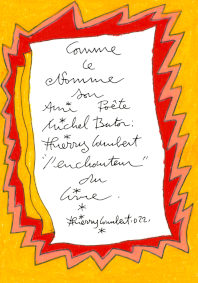 Comme
le
Nomme
son
Ami Poète
Michel Butor:
Thierry Lambert
"enchanteur"
du
livre.
Thierry Lambert. 022.